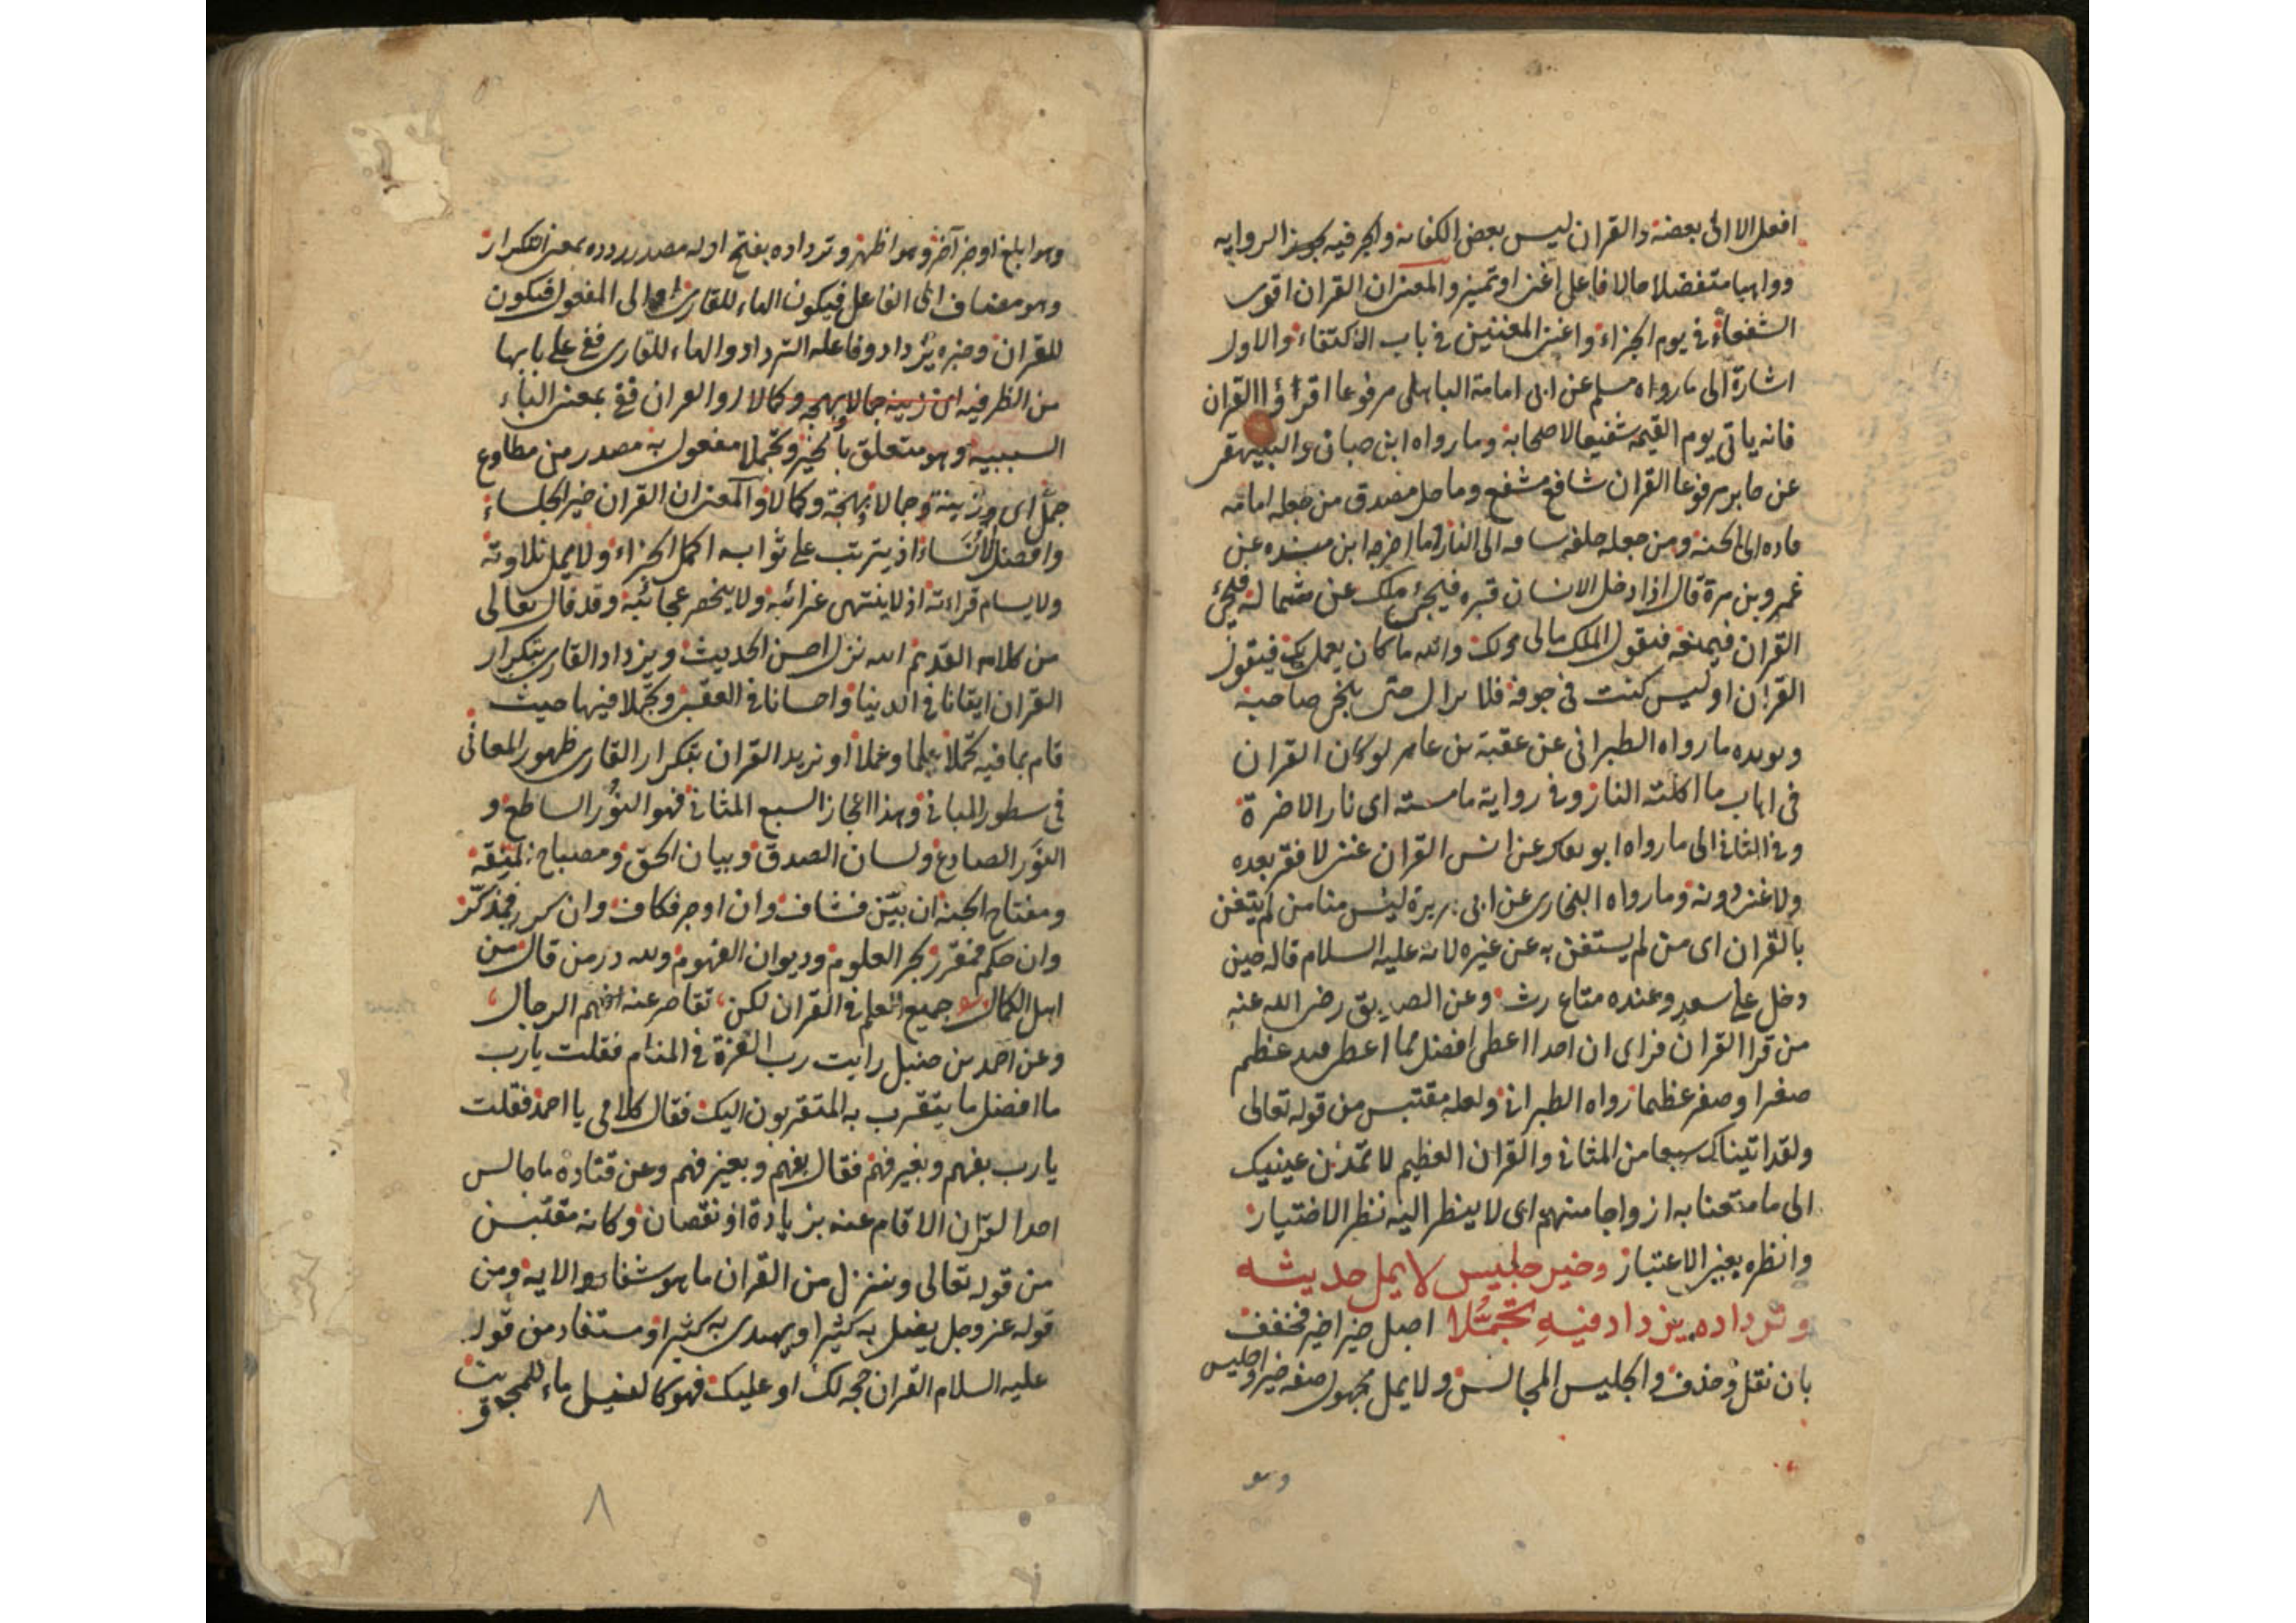 افعل الا الى بعضه والقران ليس بعض الكفاية والجر فيه يجوز الرواية
وواهبا متفضلا حالا فاعل اغنى او تميز والمعنى ان القران اقوى
الشفعاء في يوم الجزاء واغنى المغنين في باب الاكتفاء والاول
اشارة الى ما رواه مسلم عن ابى امامة الباهلى مرفوعا اقرؤا القران
فانه ياتى يوم القيمة شفيعا لاصحابه وما رواه ابن حبان والبيهقى
عن جابر مرفوعا القران شافع مشفع وماحل مصدق من جعله امامه
قاده الى الجنة ومن جعله خلفه ساقه الى النار وما اخرجه ابن منده عن
عمرو بن مرة قال اذا دخل الانسان قبره فيجئ ملك عن شماله فيجئ
القران فيمنعه فيقول الملك مالى ولك والله ما كان يعمل بك فيقول
القران اوليس كنت في جوفه فلا يزال حتى ينجى صاحبه
ويويده ما رواه الطبرانى عن عقبة بن عامر لو كان القران
فى اهاب ما اكلته النار وفى رواية ما مسته اى نار الاخرة
وفى الثانى الى ما رواه ابو يعلى عن انس القران غنى لا فقر بعده
ولا غنى دونه وما رواه البخارى عن ابى هريرة ليس منا من لم يتغن
بالقران اى من لم يستغن به عن غيره لانه عليه السلام قاله حين
دخل على سعد وعنده متاع رث وعن الصديق رضى الله عنه
من قرا القران فراى ان احدا اعطى افضل مما اعطى فقد عظم
صغيرا وصغر عظيما رواه الطبرانى ولعله مقتبس من قوله تعالى
ولقد اتيناك سبعا من المثانى والقران العظيم لا تمدن عينيك
الى ما متعنا به ازواجا منهم اى لا ينظر اليه نظر الاختيار
وانظره بعين الاعتبار وخير جليس لا يمل حديثه
وترداده يزداد فيه تجملا اصل خير اخير فخفف
بان نقل وحذف والجليس المجالس ولا يمل مجهول صفه خير او جليس
وهو
وهو ابلغ او خبر آخر وهو اظهر وترداده بفتح اوله مصدر ردده بمعنى التكرار
وهو مضاف الى الفاعل فيكون الهاء للقارى او الى المفعول فيكون
للقران وخبره يزداد وفاعله الترداد والهاء للقارى ففى على بابها
من الظرفيه اى زينه جمالا وبهجه وكمالا او القران ففى بمعنى الباء
السببيه وهو متعلق بالخير وتجملا مفعول به مصدر من مطاوع
جمل اى وزينة وجمالا وبهجة وكمالا والمعنى ان القران خير الجلساء
وافضل الانساء اذ يترتب على ثوابه اكمل الجزاء ولا يمل تلاوته
ولا يسام قراءته اذ لا ينتهى غرائبه ولا ينحصر عجائبه وقد قال تعالى
من كلامه القديم الله نزل احسن الحديث ويزداد القارى بتكرار
القران ايقانا فى الدنيا واحسانا فى العقبى وتجملا فيها حيث
قام بما فيه تحملا علما وعملا او نريد القران بتكرار القارى ظهور المعانى
فى سطور المبانى وهذا اعجاز السبع المثانى فهو النور الساطع و
النور الصادع ولسان الصدق وبيان الحق ومصباح
ومفتاح الجنة ان بين فشاف وان اوجز فكاف وان كرر فمذكر
وان حكم فمقرر بحر العلوم وديوان الفهوم ولله در من قال من
اهل الكمال جميع العلم فى القران لكن تقاصر عنه افهم الرجال
وعن احمد بن حنبل رايت رب العزة فى المنام فقلت يا رب
ما افضل ما يتقرب به المتقربون اليك فقال كلامى يا احمد فقلت
يا رب بفهم وبغير فهم فقال بفهم وبغير فهم وعن قتاده ما جالس
احد القران الا قام عنه بزيادة او نقصان وكانه مقتبس
من قوله تعالى وننزل من القران ما هو شفاء الايه ومن
قوله عز وجل يضل به كثيرا ويهدى به كثيرا ومستفاد من قوله
عليه السلام القران حجه لك او عليك فهو كالنيل ماء للمحبوبين
٨